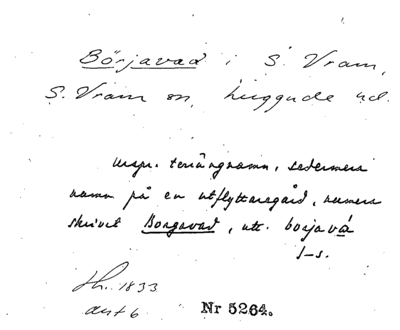 Börjavad i S. Vram,
S. Vram sn, Luggude hd.
urspr. terrängnamn, sedermera
namn på en utflyttaregård, numera
skrivet Borgavad, utt. borjavá
J-s.
1833
akt 6
Nr 5264.